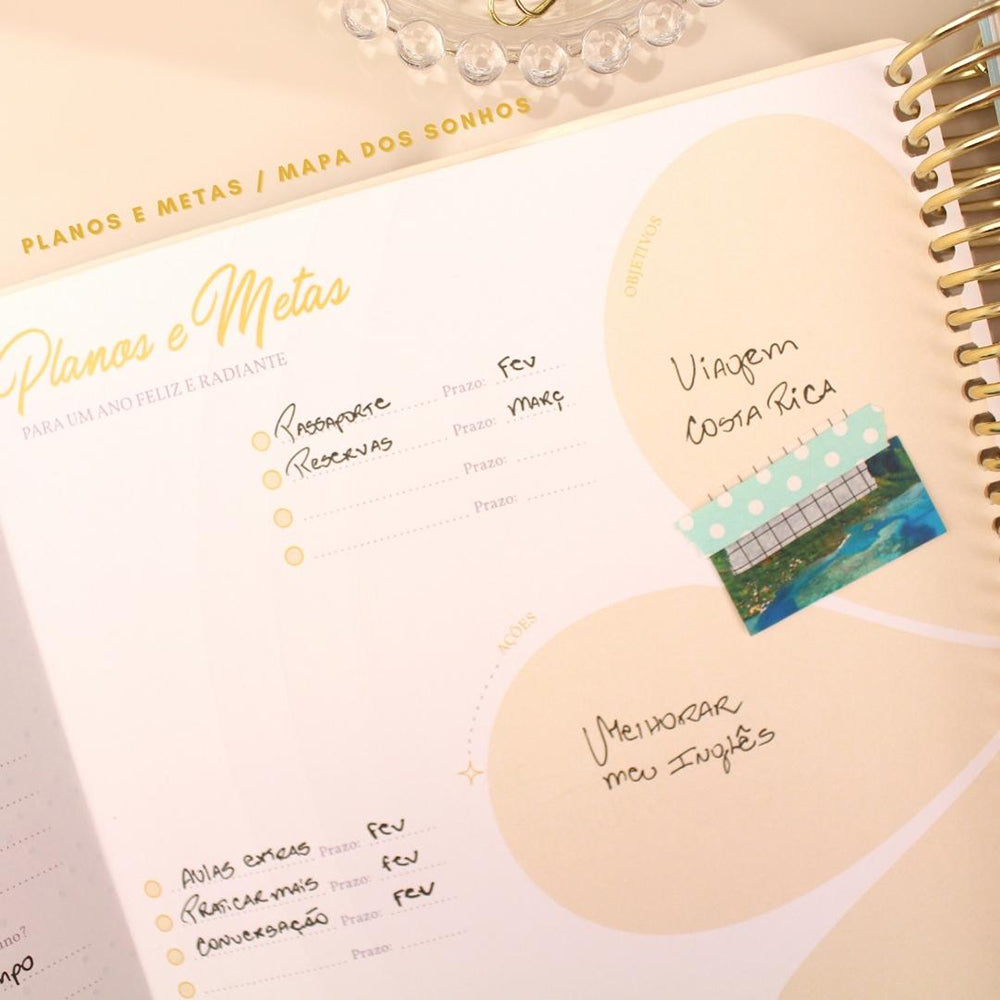 PLANOS E METAS / MAPA DOS SONHOS
Planos e Metas
PARA UM ANO FELIZ E RADIANTE
PASSAPORTE Prazo: FEV
RESERVAS Prazo: MARÇ
Prazo:
Prazo:
OBJETIVOS
VIAGEM
COSTA RICA
AÇÕES
MELHORAR
MEU INGLÊS
AULAS EXTRAS Prazo: FEV
PRATICAR MAIS Prazo: FEV
CONVERSAÇÃO Prazo: FEV
Prazo: